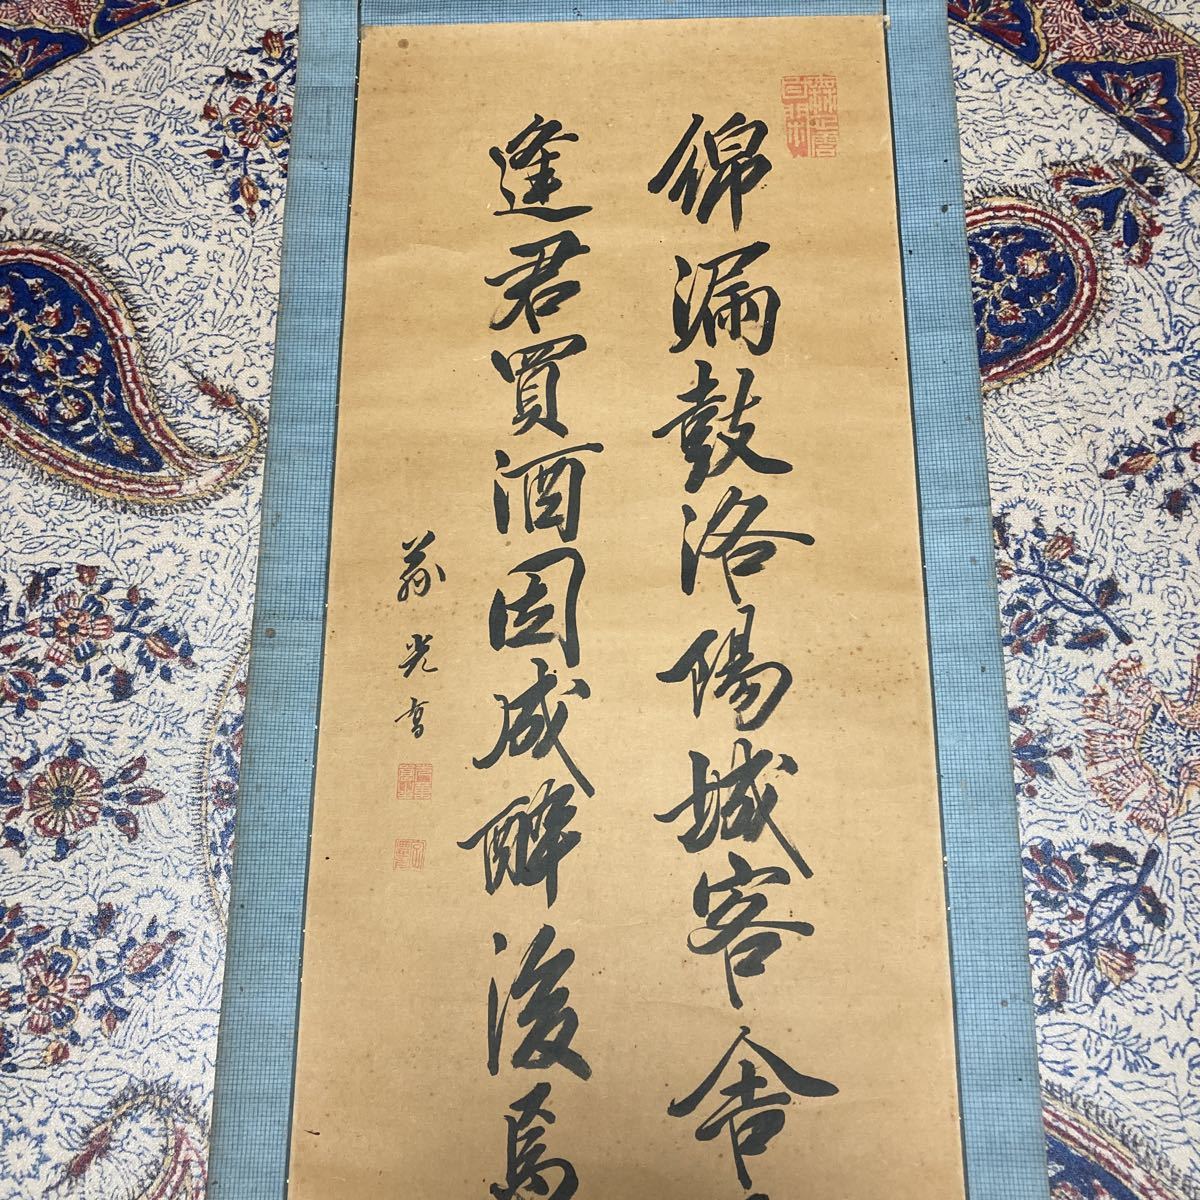 綿漏鼓洛陽城客舎
逢君買酒因成醉後焉
光